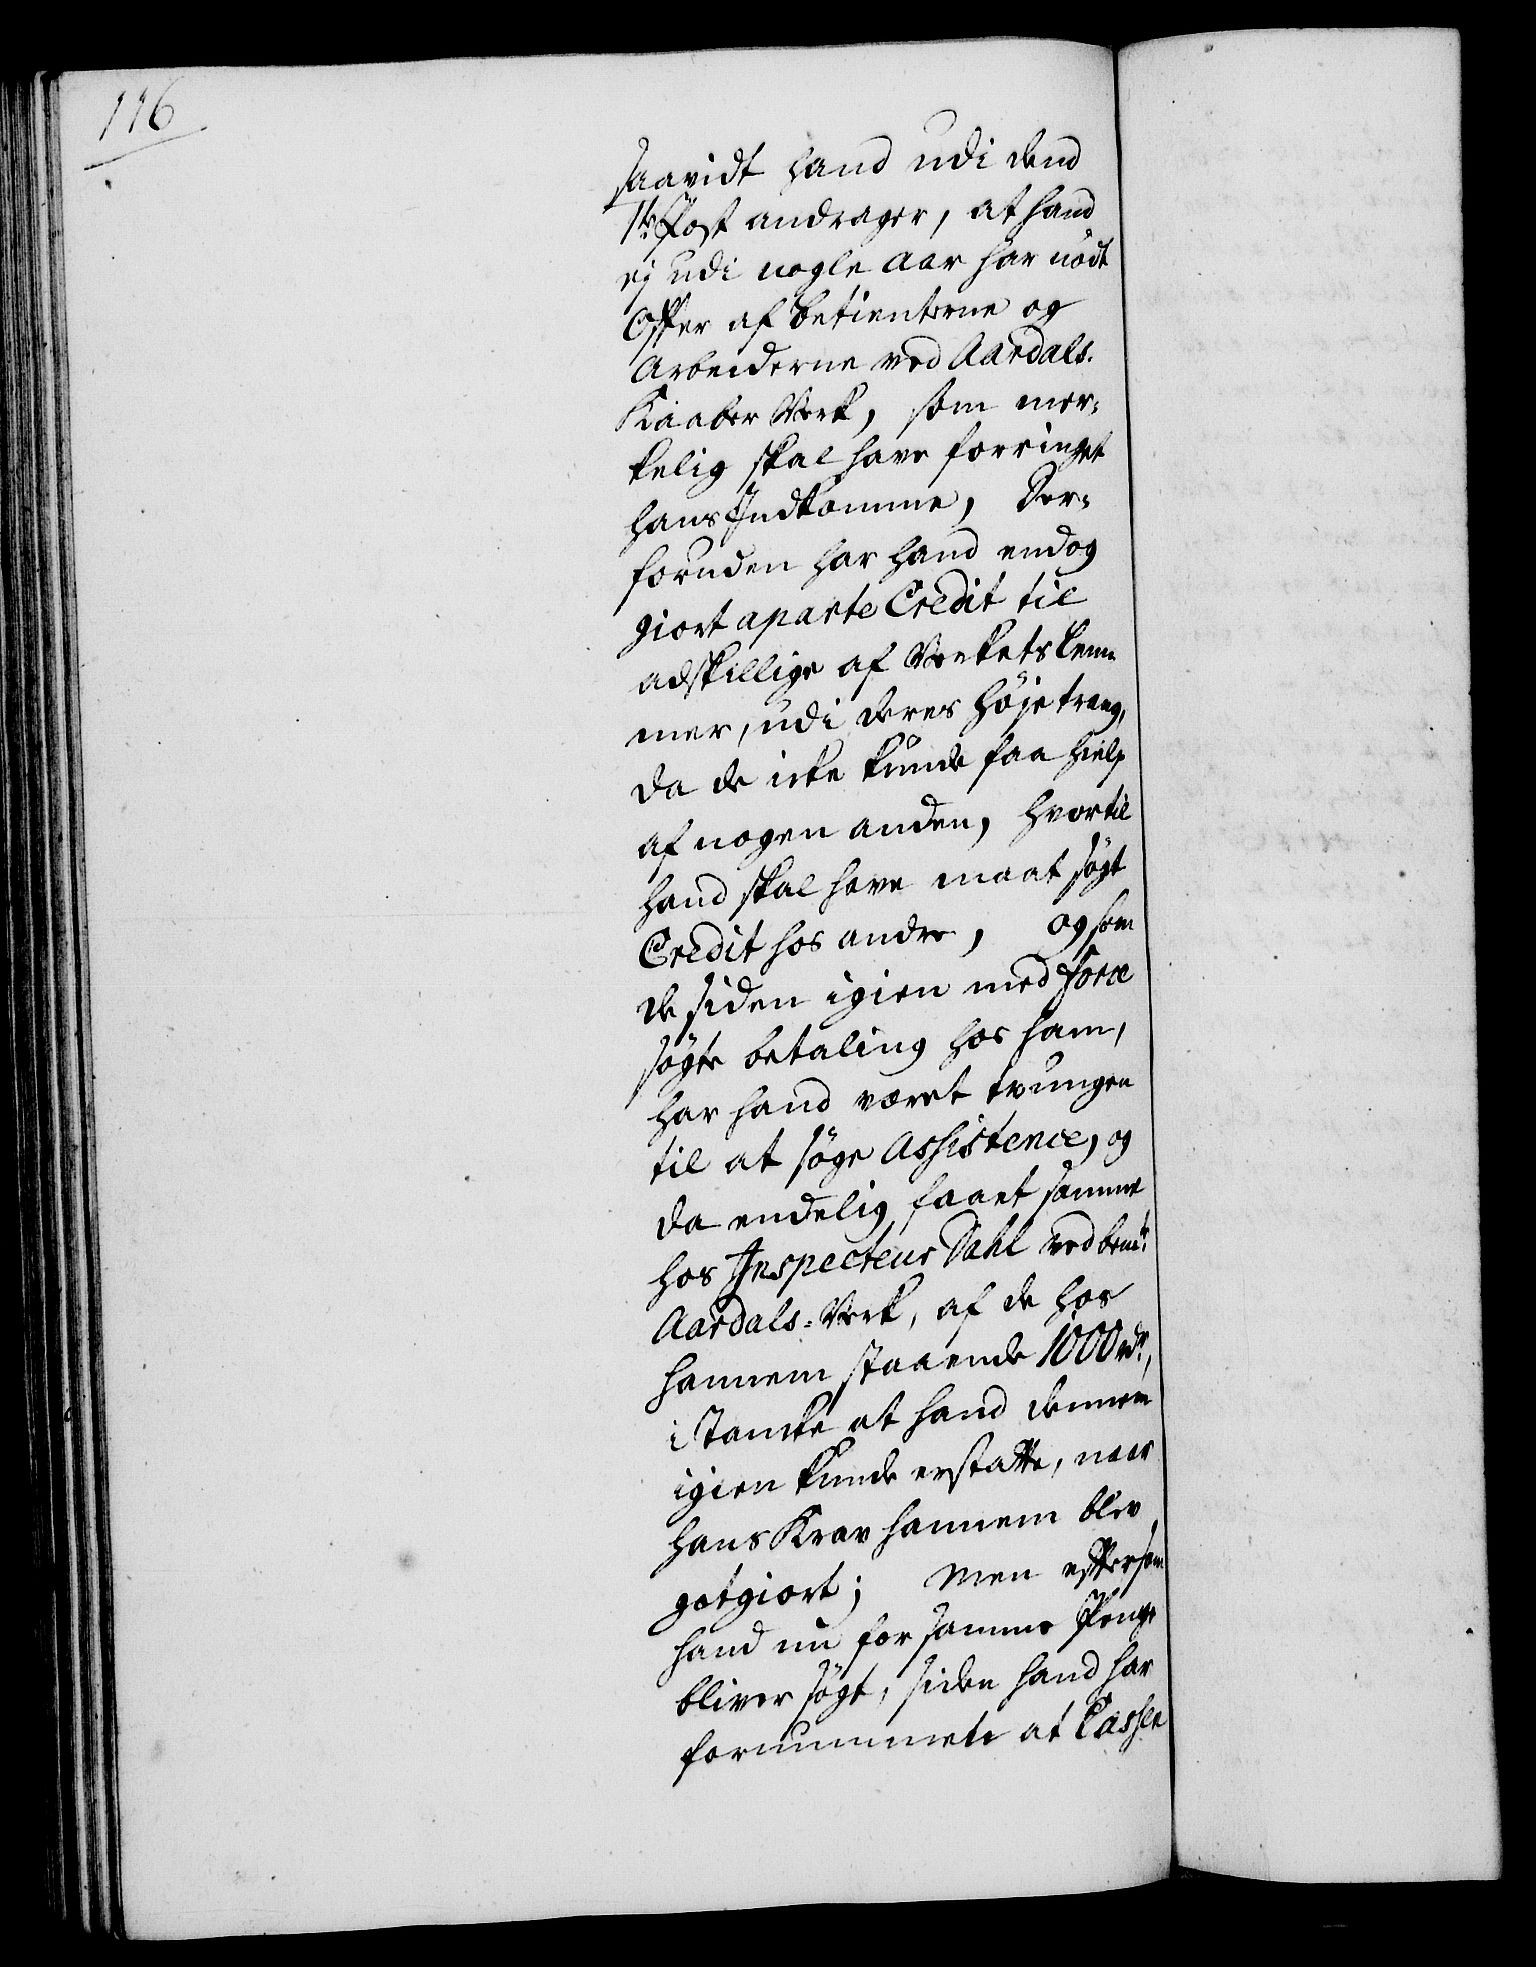 116
saavidt hand udi dend
1te Post andrager, at hand
ej udi nogle Aar har nödt
Offer af betienterne og
Arbeiderne ved Aardals-
Kaaber Verk, som mer-
kelig skal have forringet
hans Indkomme, Der-
foruden har hand endog
giort aparte Credit til
adskillige af Verkets Lem-
mer, udi deres höje trang,
da de icke kunde faa hielp
af nogen anden, hvortil
hand skal have maat sögt
Credit hos andre, og som
de siden igien med force
sögte betaling hos ham,
har hand været tvungen
til at söge Assistence, og
da endelig faaet samme
hos Inspecteur Dahl ved bemte
Aardals-Verk, af de hos
hannem staaende 1000 rdr,
i Tancke at hand dennem
igien kunde erstatte, naar
hans Krav hannem blev
gotgiort; Men efftersom
hand nu for samme Penge
bliver sögt, siden hand har
fornummet at Cassen